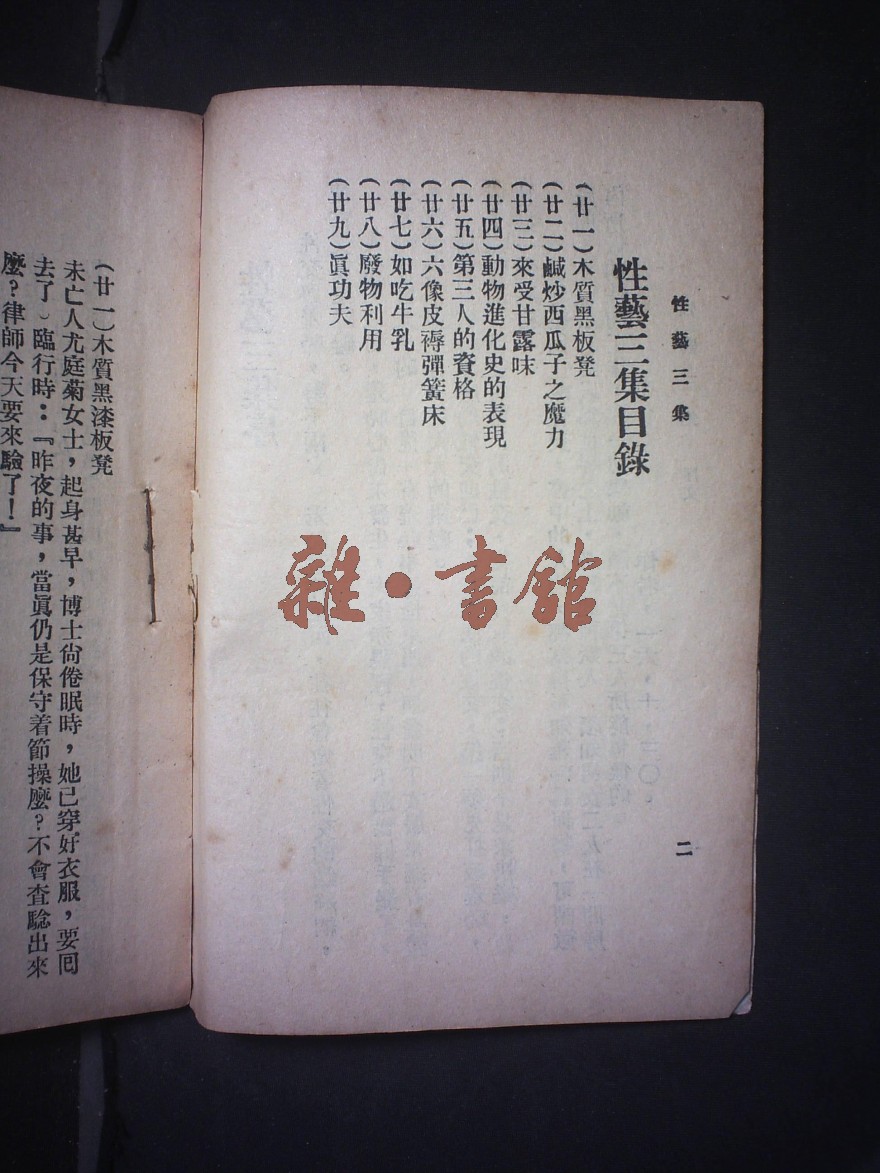 性藝三集
二
性藝三集目錄
(廿一)木質黑板凳
(廿二)鹹炒西瓜子之魔力
(廿三)來受甘露味
(廿四)動物進化史的表現
(廿五)第三人的資格
(廿六)六像皮褥彈簧床
(廿七)如吃牛乳
(廿八)廢物利用
(廿九)眞功夫
(廿一)木質黑漆板凳
未亡人尤庭菊女士，起身甚早，博士尙倦眠時，她已穿好衣服，要囘
去了，臨行時：『昨夜的事，當眞仍是保守着節操麼？不會査驗出來
麼？律師今天要來驗了！』
雜·書館